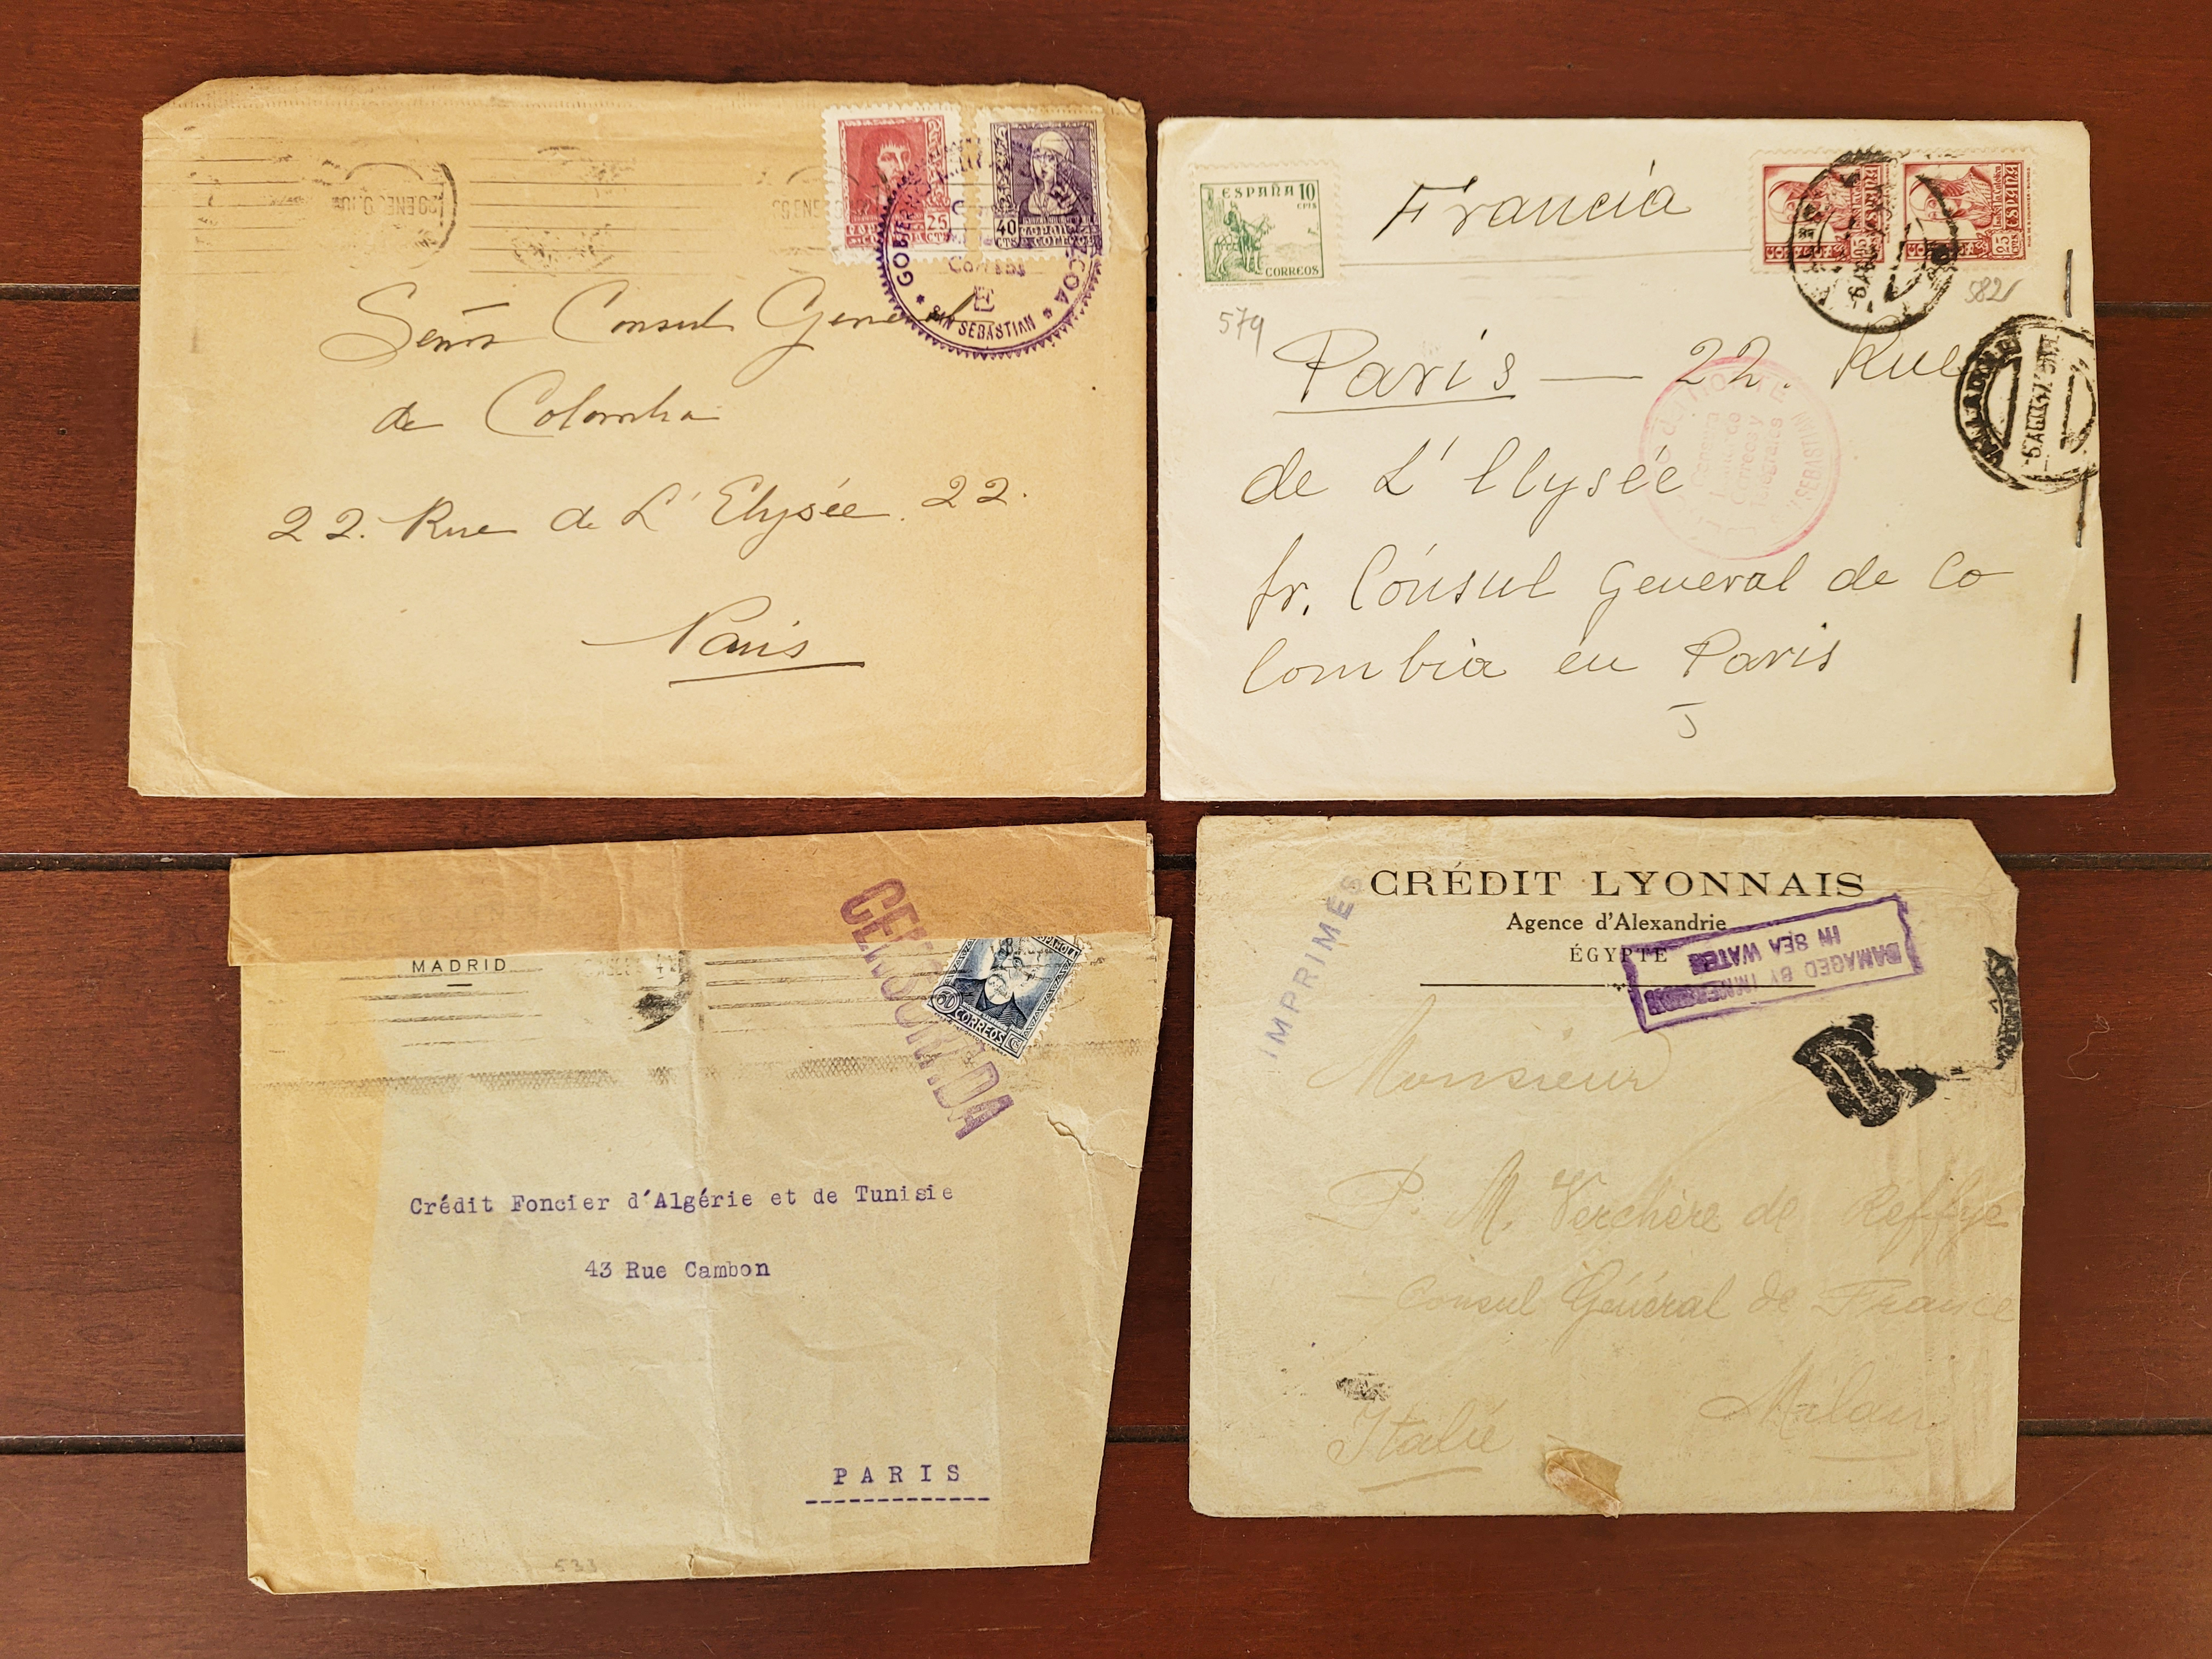 25
CTS
40
CTS
CORREOS
GOBIERNO
Correos
E
SAN SEBASTIAN
Señor Consul General
de Colombia
22. Rue de L'Elysée. 22.
Paris
ESPAÑA 10
CTS
CORREOS
Francia
ESPAÑA
ESPAÑA
579
582
Paris — 22. Rue
de L'Elysée
Sr. Cónsul General de Co
lombia en Paris
VALLADOLID
SEBASTIAN
CENSURADA
MADRID
ESPAÑOLA
60
CORREOS
Crédit Foncier d'Algérie et de Tunisie
43 Rue Cambon
PARIS
533
IMPRIMÉS
CRÉDIT LYONNAIS
Agence d'Alexandrie
ÉGYPTE
DAMAGED BY IMMERSION
IN SEA WATER
Monsieur
P. M. Verchère de Reffye
Consul Général de France
Milan
Italie